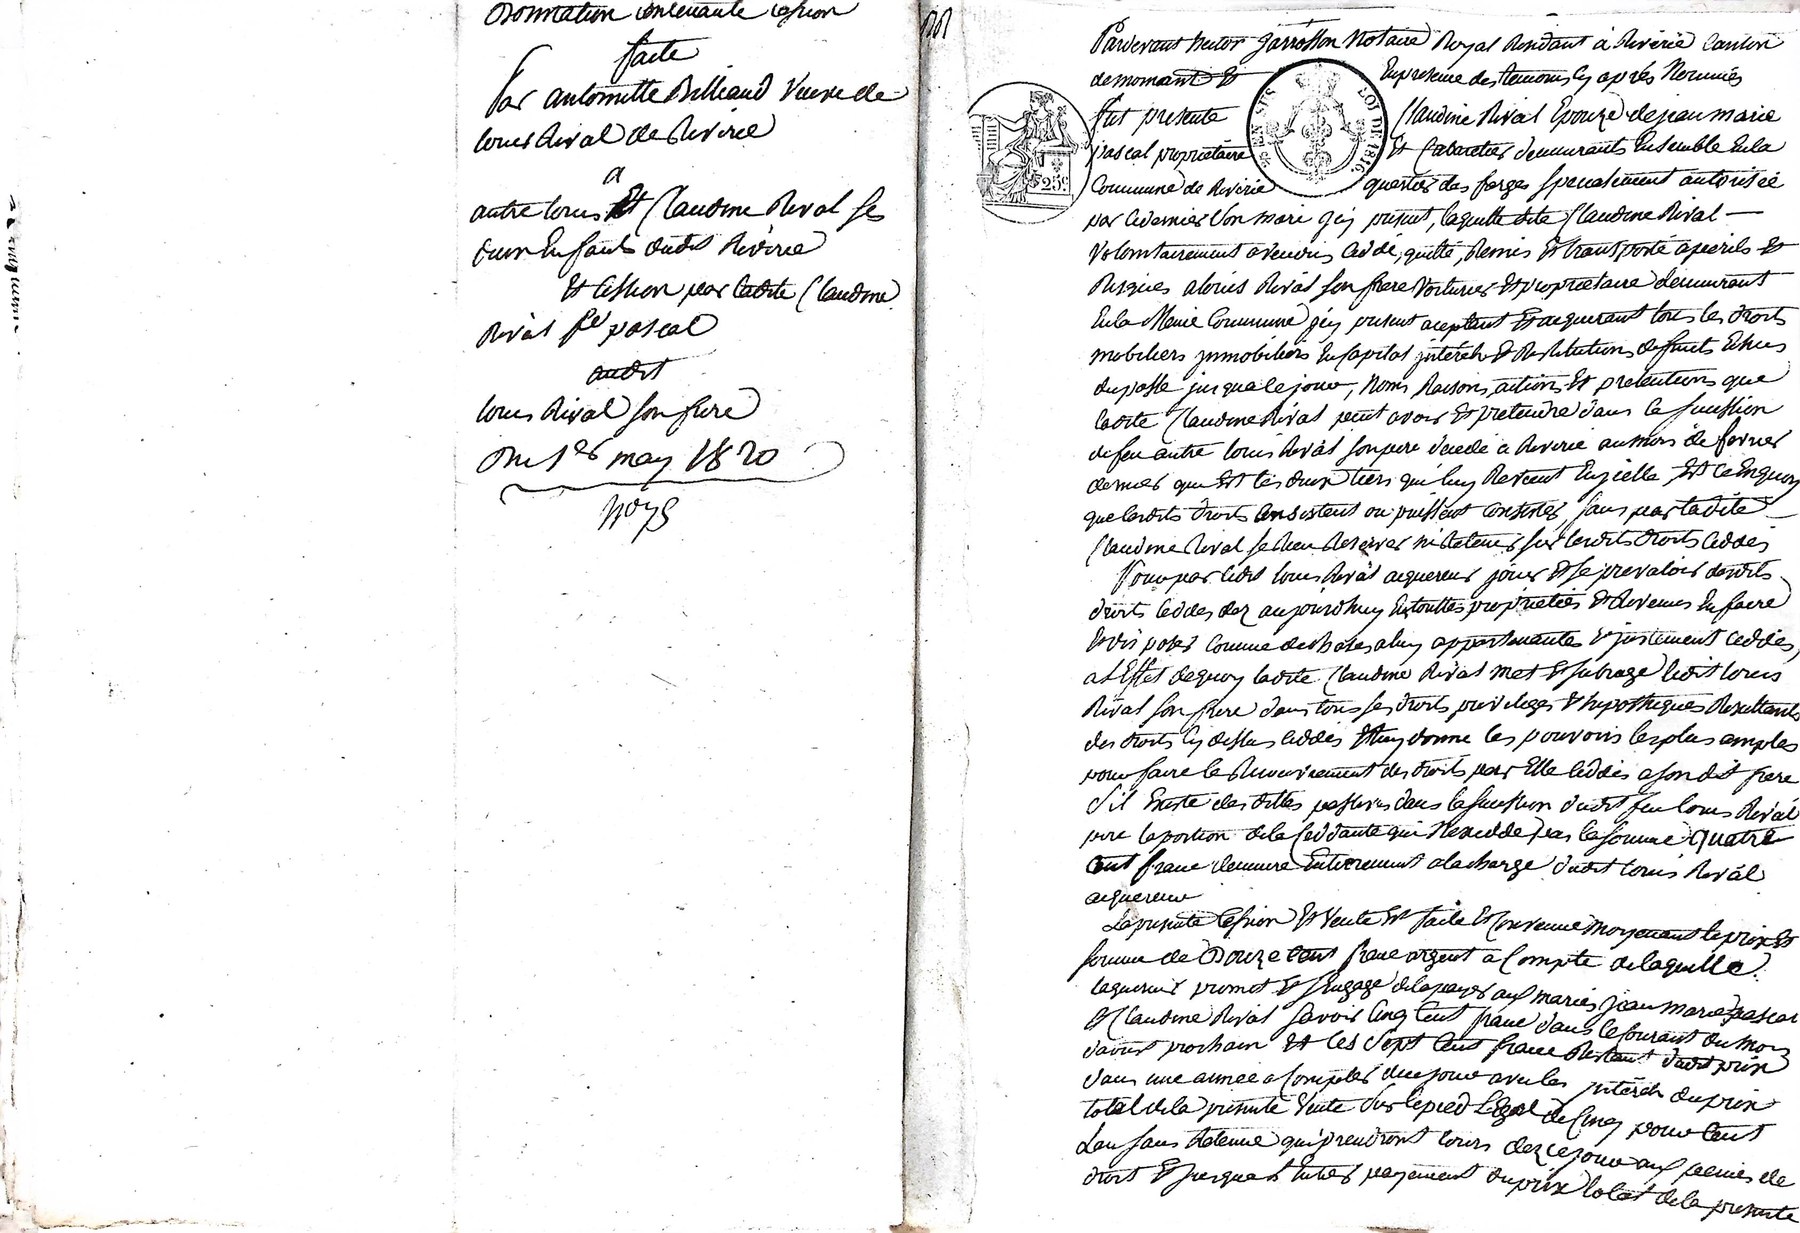 Donnation contenante cession
faite
Par antoinette Billiaud Veuve de
Louis Rival de Riverie
a
autre Louis Et Claudine Rival ses
deux Enfants dudit Riverie
Et Cession par ladite Claudine
Rival fe pascal
audit
Louis Rival son frere
Du 1er may 1820
Pardevant hector garrosson Notaire Royal Residant à Riverie Canton
de mornant Et En presence des temoins cy après Nommés
fut presente Claudine Rival Epouze de jean marie
pascal propriétaire Et Cabaretier demeurants Ensemble En la
Commune de Riverie quartier des forges specialement autorisée
par ce dernier son mari icy present, laquelle dite Claudine Rival
volontairement a vendu ceddé, quitté, Remis Et transporté a perils Et
Risques a louis Rival son frere voiturier Et proprietaire demeurant
En la Meme Commune icy present aceptant Et aquerant tous les droits
mobiliers immobiliers En Capital intérêts Et Restitutions de fruits Echus
du passé jusqua ce jour, Noms Raisons, actions Et pretentions que
ladite Claudine Rival peut avoir Et pretendre dans la succession
de feu autre louis Rival son pere decedé a Riverie au mois de fevrier
dernier qui Est les deux tiers qui luy Revient En icelle Et ce En quoy
que lesdits droits Consistent ou puissent Consister sans par ladite
Claudine Rival se Rien Reserver ni Retenir sur lesdits droits ceddés
Pour par ledit louis Rival aquereur jouir Et se prevaloir desdits
droits ceddés dez aujourdhuy En touttes proprietés Et Revenus En faire
Et disposer Comme de choses a luy appartenantes Et justement ceddés,
a l'Effet de quoy ladite Claudine Rival met Et subroge ledit louis
Rival son frere dans tous ses droits privileges Et hypothèques Resultants
des droits cy dessus ceddés Et luy donne les pouvoirs les plus amples
pour faire le Recouvrement des droits par Elle ceddés a son dit frere
S'il Existe des dettes passives dans la succession dudit feu louis Rival
pere la portion de la Ceddante qui N'excedde pas la somme Quatre
Cent franc demeure Entierement a la charge dudit louis Rival
aquereur
La presente Cession Et vente Est faite Et Convenue moyenant le prix Et
somme de Douze Cent franc argent a Compte de laquelle
laquereur promet Et s'Engage de la payer aux mariés jean marie pascal
Et Claudine Rival savoir Cinq Cent franc dans le Courant du mois
d'aoust prochain Et les Sept Cent franc Restant dudit prix
dans une année a Compter de ce jour avec les intérêts du prix
total de la presente vente Sur le pied Légal de Cinq pour Cent
L'an sans Retenue qui prendront cours dez ce jour aux peines de
droit Et jusqua l'Entier payement du prix total de la presente